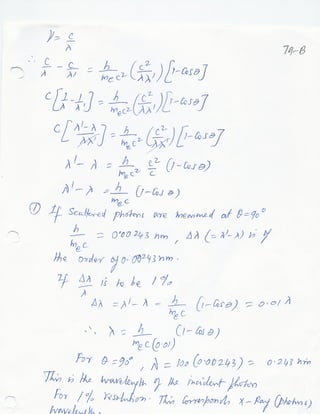 ν = c/λ
7A-B
∴ c/λ - c/λ' = h/m₀c² (c²/λλ') [1-Cosθ]
c[1/λ - 1/λ'] = h/m₀c² (c²/λλ') [1-Cosθ]
c[λ'-λ/λλ'] = h/m₀c² (c²/λλ') [1-Cosθ]
λ' - λ = h/m₀c² c²/c (1-Cosθ)
λ' - λ = h/m₀c (1-Cosθ)
① If Scattered photons are measured at θ=90°
h/m₀c = 0.00243 nm, Δλ (=λ'-λ) is of
the order of 0.00243nm.
If Δλ/λ is to be 1%
Δλ = λ' - λ = h/m₀c (1-Cosθ) = 0.01 λ
∴ λ = h/m₀c(0.01) (1-Cosθ)
For θ = 90°, λ = 100 (0.00243) = 0.243 nm
This is the wavelength of the incident photon
For 1% resolution. This corresponds X-Ray (photons)
wavelength.